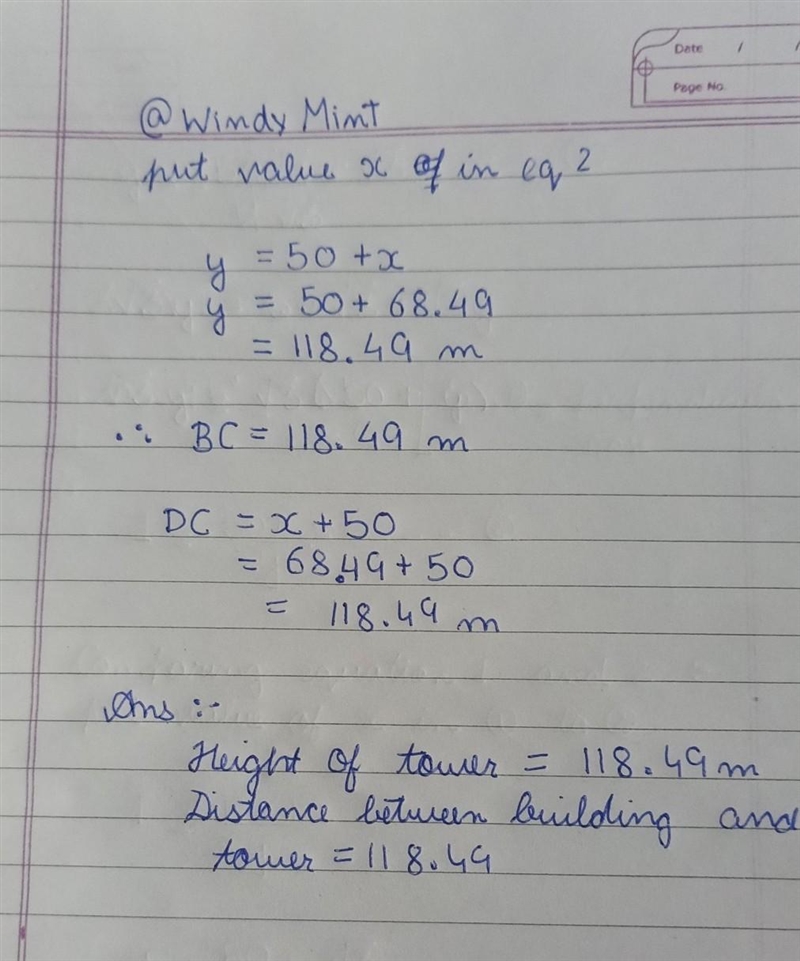 Date / /
Page No.
@Windy Mint
put value x of in eq 2
y = 50 + x
y = 50 + 68.49
= 118.49 m
∴ BC = 118.49 m
DC = x + 50
= 68.49 + 50
= 118.49 m
Ans :-
Height of tower = 118.49 m
Distance between building and
tower = 118.49